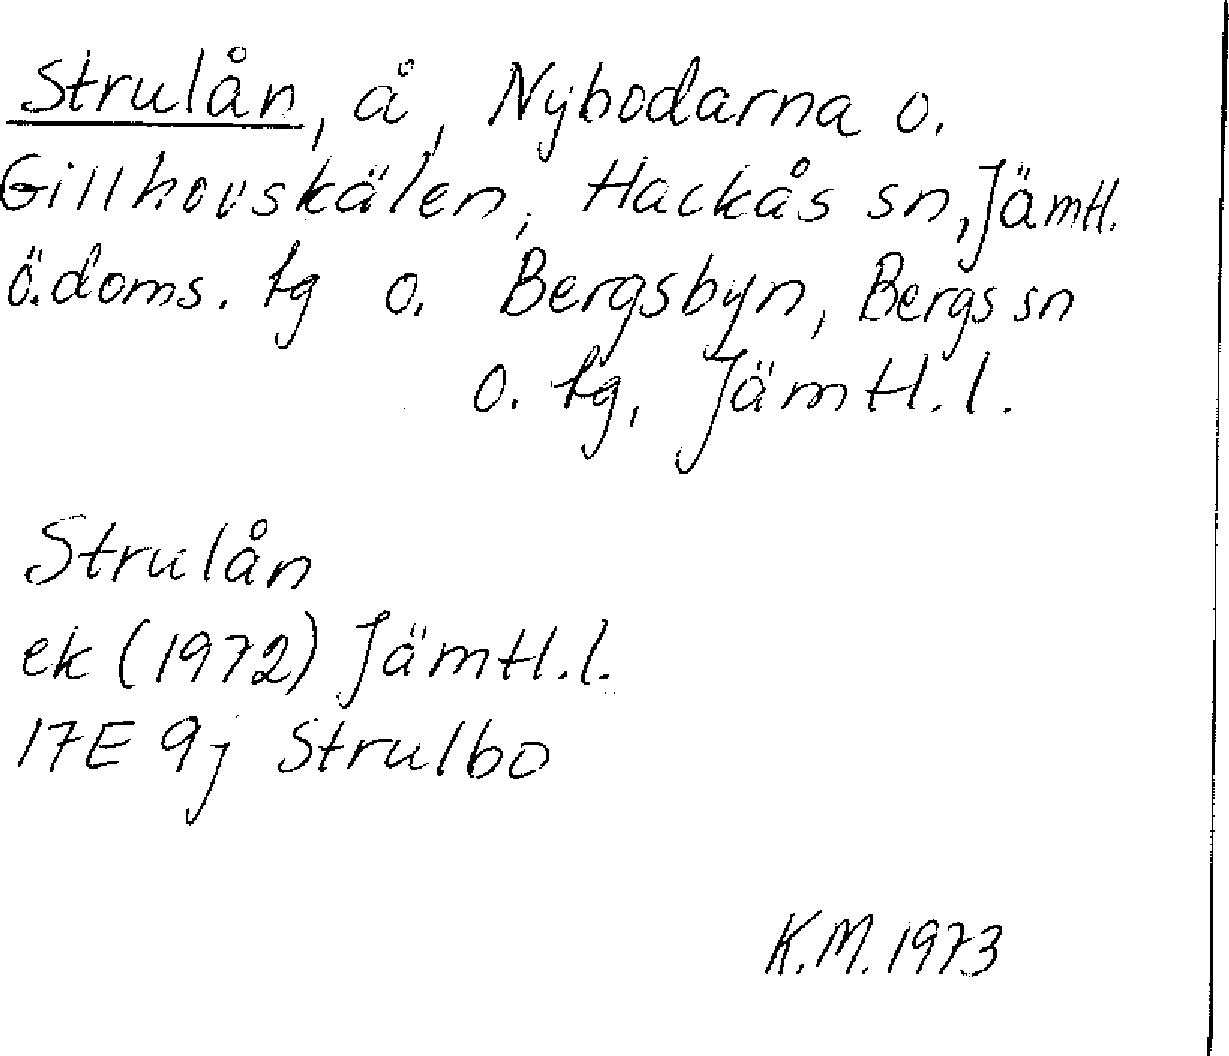 Strulån, å, Nybodarna o.
Gillhovskälen, Hackås sn, Jämtl.
ö. doms. tg o. Bergsbyn, Bergs sn
o. tg, Jämtl. l.
Strulån
ek (1972) Jämtl. l.
17E 9j Strulbo
K.M. 1973